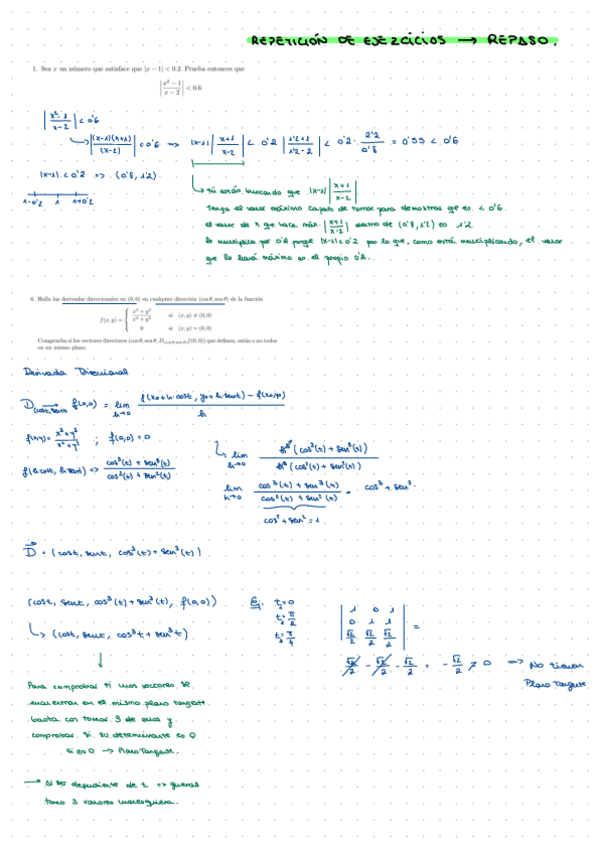 REPETICIÓN DE EJERCICIOS → REPASO.
1. Sea x un número que satisface que |x − 1| < 0.2. Prueba entonces que
|x² − 1 / x − 2| < 0.6
|x² − 1 / x − 2| < 0'6
↳ |(x−1)(x+1) / (x−2)| < 0'6 => |x−1| |x+1 / x−2| < 0'2 |1'2+1 / 1'2−2| < 0'2 · 2'2 / 0'8 = 0'55 < 0'6
|x−1| < 0'2 => (0'8, 1'2).
1−0'2 1 1+0'2
↳ Si están buscando que |x−1| |x+1 / x−2|
tenga el valor máximo capaz de tomar para demostrar que es < 0'6
el valor de x que hace máx |x+1 / x−2| dentro de (0'8, 1'2) es 1'2
lo multiplica por 0'2 porque |x−1| < 0'2 por lo que, como está multiplicando, el valor
que lo hará máximo es el propio 0'2.
6. Halla las derivadas direccionales en (0, 0) en cualquier dirección (cos θ, sen θ) de la función
f(x, y) = { x³ + y³ / x² + y² si (x, y) ≠ (0, 0)
0 si (x, y) = (0, 0)
Comprueba si los vectores directores (cos θ, sen θ, D(cos θ, sen θ) f(0, 0)) que definen, están o no todos
en un mismo plano.
Derivada Direccional
D(cost, sent) f(0,0) = lim h→0 f(x0+h·cost, y0+h·sent) − f(x0,y0) / h
f(x,y) = x³+y³ / x²+y² ; f(0,0) = 0
↳ lim h→0 h³ (cos³(t) + sen³(t)) / h³ (cos²(t) + sen²(t))
f(h cost, h sent) => cos³(t) + sen³(t) / cos²(t) + sen²(t)
lim h→0 cos³(t) + sen³(t) / cos²(t) + sen²(t) = cos³ + sen³.
cos² + sen² = 1
D = (cost, sent, cos³(t) + sen³(t))
(cost, sent, cos³(t) + sen³(t), f(0,0))
↳ (cost, sent, cos³t + sen³t)
Ej: t₁ = 0
t₂ = π/2
t₃ = π/4
| 1 0 1 |
| 0 1 1 | =
| √2/2 √2/2 √2/2 |
√2/2 − √2/2 − √2/2 = −√2/2 ≠ 0 → No tienen
Plano Tangente.
↓
Para comprobar si unos vectores se
encuentran en el mismo plano tangente
basta con tomar 3 de ellos y
comprobar si su determinante es 0
si es 0 → Plano Tangente.
→ Al ser dependiente de t → general
tomo 3 valores cualesquiera.